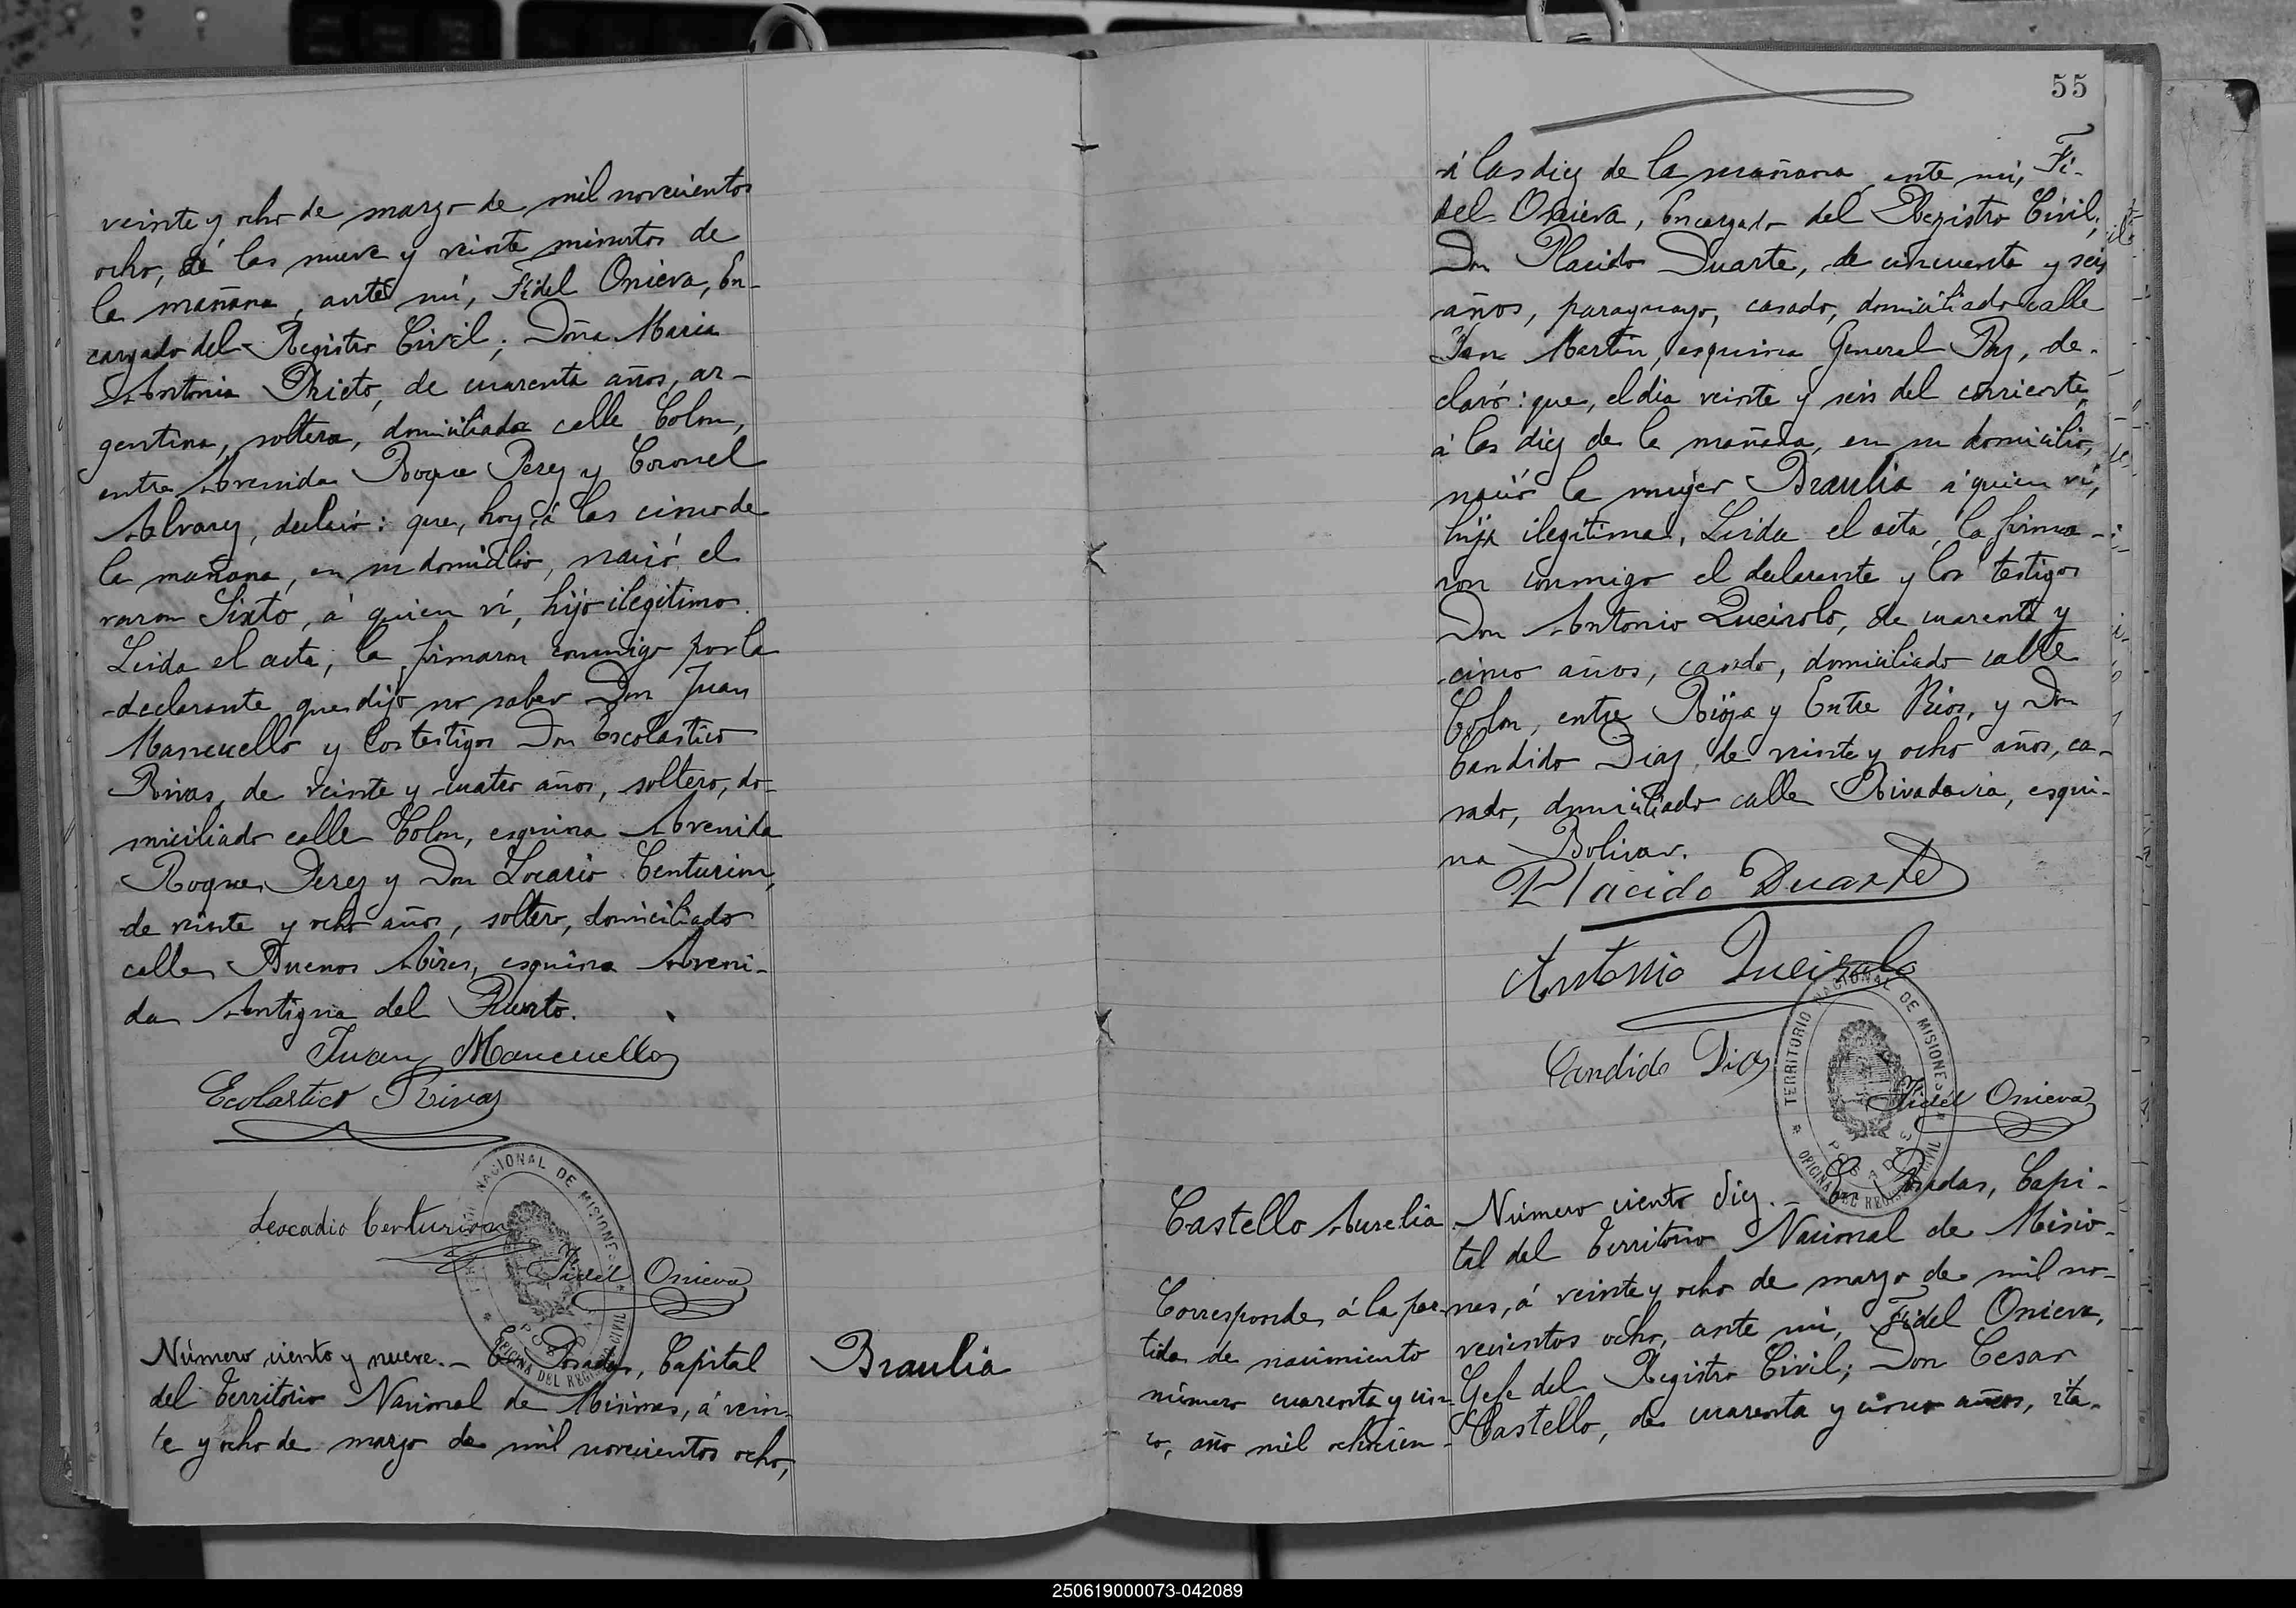 veinte y ocho de marzo de mil novecientos
ocho, á las nueve y veinte minutos de
la mañana, ante mí, Fidel Onieva, En-
cargado del Registro Civil; Doña Maria
Antonia Prieto, de cuarenta años, ar-
gentina, soltera, domiciliada calle Colon,
entre Avenida Roque Perez y Coronel
Alvarez, declaró: que, hoy, á las cinco de
la mañana, en su domicilio, nació el
varon Sixto, á quien ví, hijo ilegitimo.
Leida el acta, la firmaron conmigo por la
declarante que dijo no saber Don Juan
Mancuello y los testigos Don Escolastico
Rivas, de veinte y cuatro años, soltero, do-
miciliado calle Colon, esquina Avenida
Roque Perez y Don Locario Centurion,
de veinte y ocho años, soltero, domiciliado
calle Buenos Aires, esquina Aveni-
da Antigua del Puerto.
Juan Mancuello
Ecolastico Rivas
Leocadio Centurion
Fidel Onieva
NACIONAL DE MISIONES
OFICINA DEL REGISTRO CIVIL
POSADAS
Número ciento y nueve.- En Posadas, Capital
del Territorio Nacional de Misiones, á vein-
te y ocho de marzo de mil novecientos ocho,
Braulia
55
á las diez de la mañana ante mí, Fi-
del Onieva, Encargado del Registro Civil;
Don Placido Duarte, de cincuenta y seis
años, paraguayo, casado, domiciliado calle
San Martin, esquina General Paz, de-
claró: que, el dia veinte y seis del corriente,
á las diez de la mañana, en su domicilio,
nació la mujer Braulia á quien ví,
hija ilegitima. Leida el acta, la firma-
ron conmigo el declarante y los testigos
Don Antonio Queirolo, de cuarenta y
cinco años, casado, domiciliado calle
Colon, entre Rioja y Entre Rios, y Don
Candido Diaz, de veinte y ocho años, ca-
sado, domiciliado calle Rivadavia, esqui-
na Bolivar.
Placido Duarte
Antonio Queirolo
Candido Diaz
Fidel Onieva
TERRITORIO NACIONAL DE MISIONES
OFICINA DEL REGISTRO CIVIL
POSADAS
Castello Aurelia
Corresponde á la par-
tida de nacimiento
número cuarenta y cin-
co, año mil ochocien-
Número ciento diez.- En Posadas, Capi-
tal del Territorio Nacional de Misio-
nes, á veinte y ocho de marzo de mil no-
vecientos ocho, ante mí, Fidel Onieva,
Gefe del Registro Civil; Don Cesar
Castello, de cuarenta y cinco años, ita-
250619000073-042089